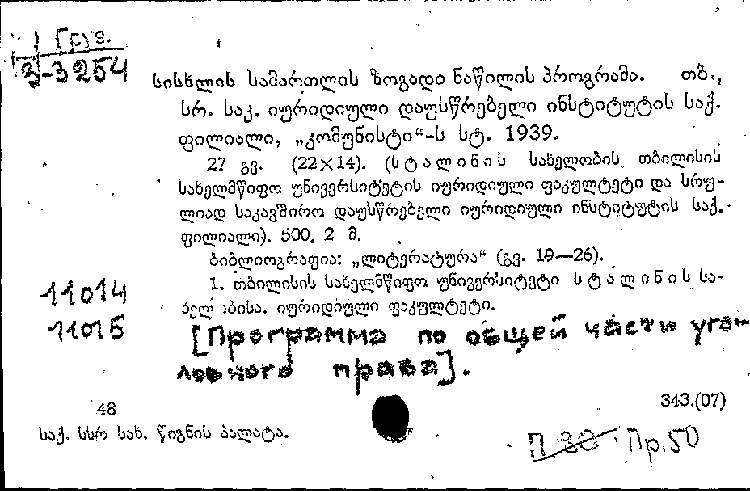 1 (Г)з.
3-3254
სისხლის სამართლის ზოგადი ნაწილის პროგრამა. თბ.,
სრ. საკ. იურიდიული დაუსწრებელი ინსტიტუტის საქ.
ფილიალი, „კომუნისტი“-ს სტ. 1939.
27 გვ. (22×14). (სტალინის სახელობის თბილისის
სახელმწიფო უნივერსიტეტის იურიდიული ფაკულტეტი და სრუ-
ლიად საკავშირო დაუსწრებელი იურიდიული ინსტიტუტის საქ.
ფილიალი). 500, 2 მ.
ბიბლიოგრაფია: „ლიტერატურა“ (გვ. 19—26).
1. თბილისის სახელმწიფო უნივერსიტეტი სტალინის სა-
ხელობისა. იურიდიული ფაკულტეტი.
11014
11015
[Программа по общей части уго-
ловного права].
48
343.(07)
საქ. სსრ სახ. წიგნის პალატა.
П 80 Пр.50